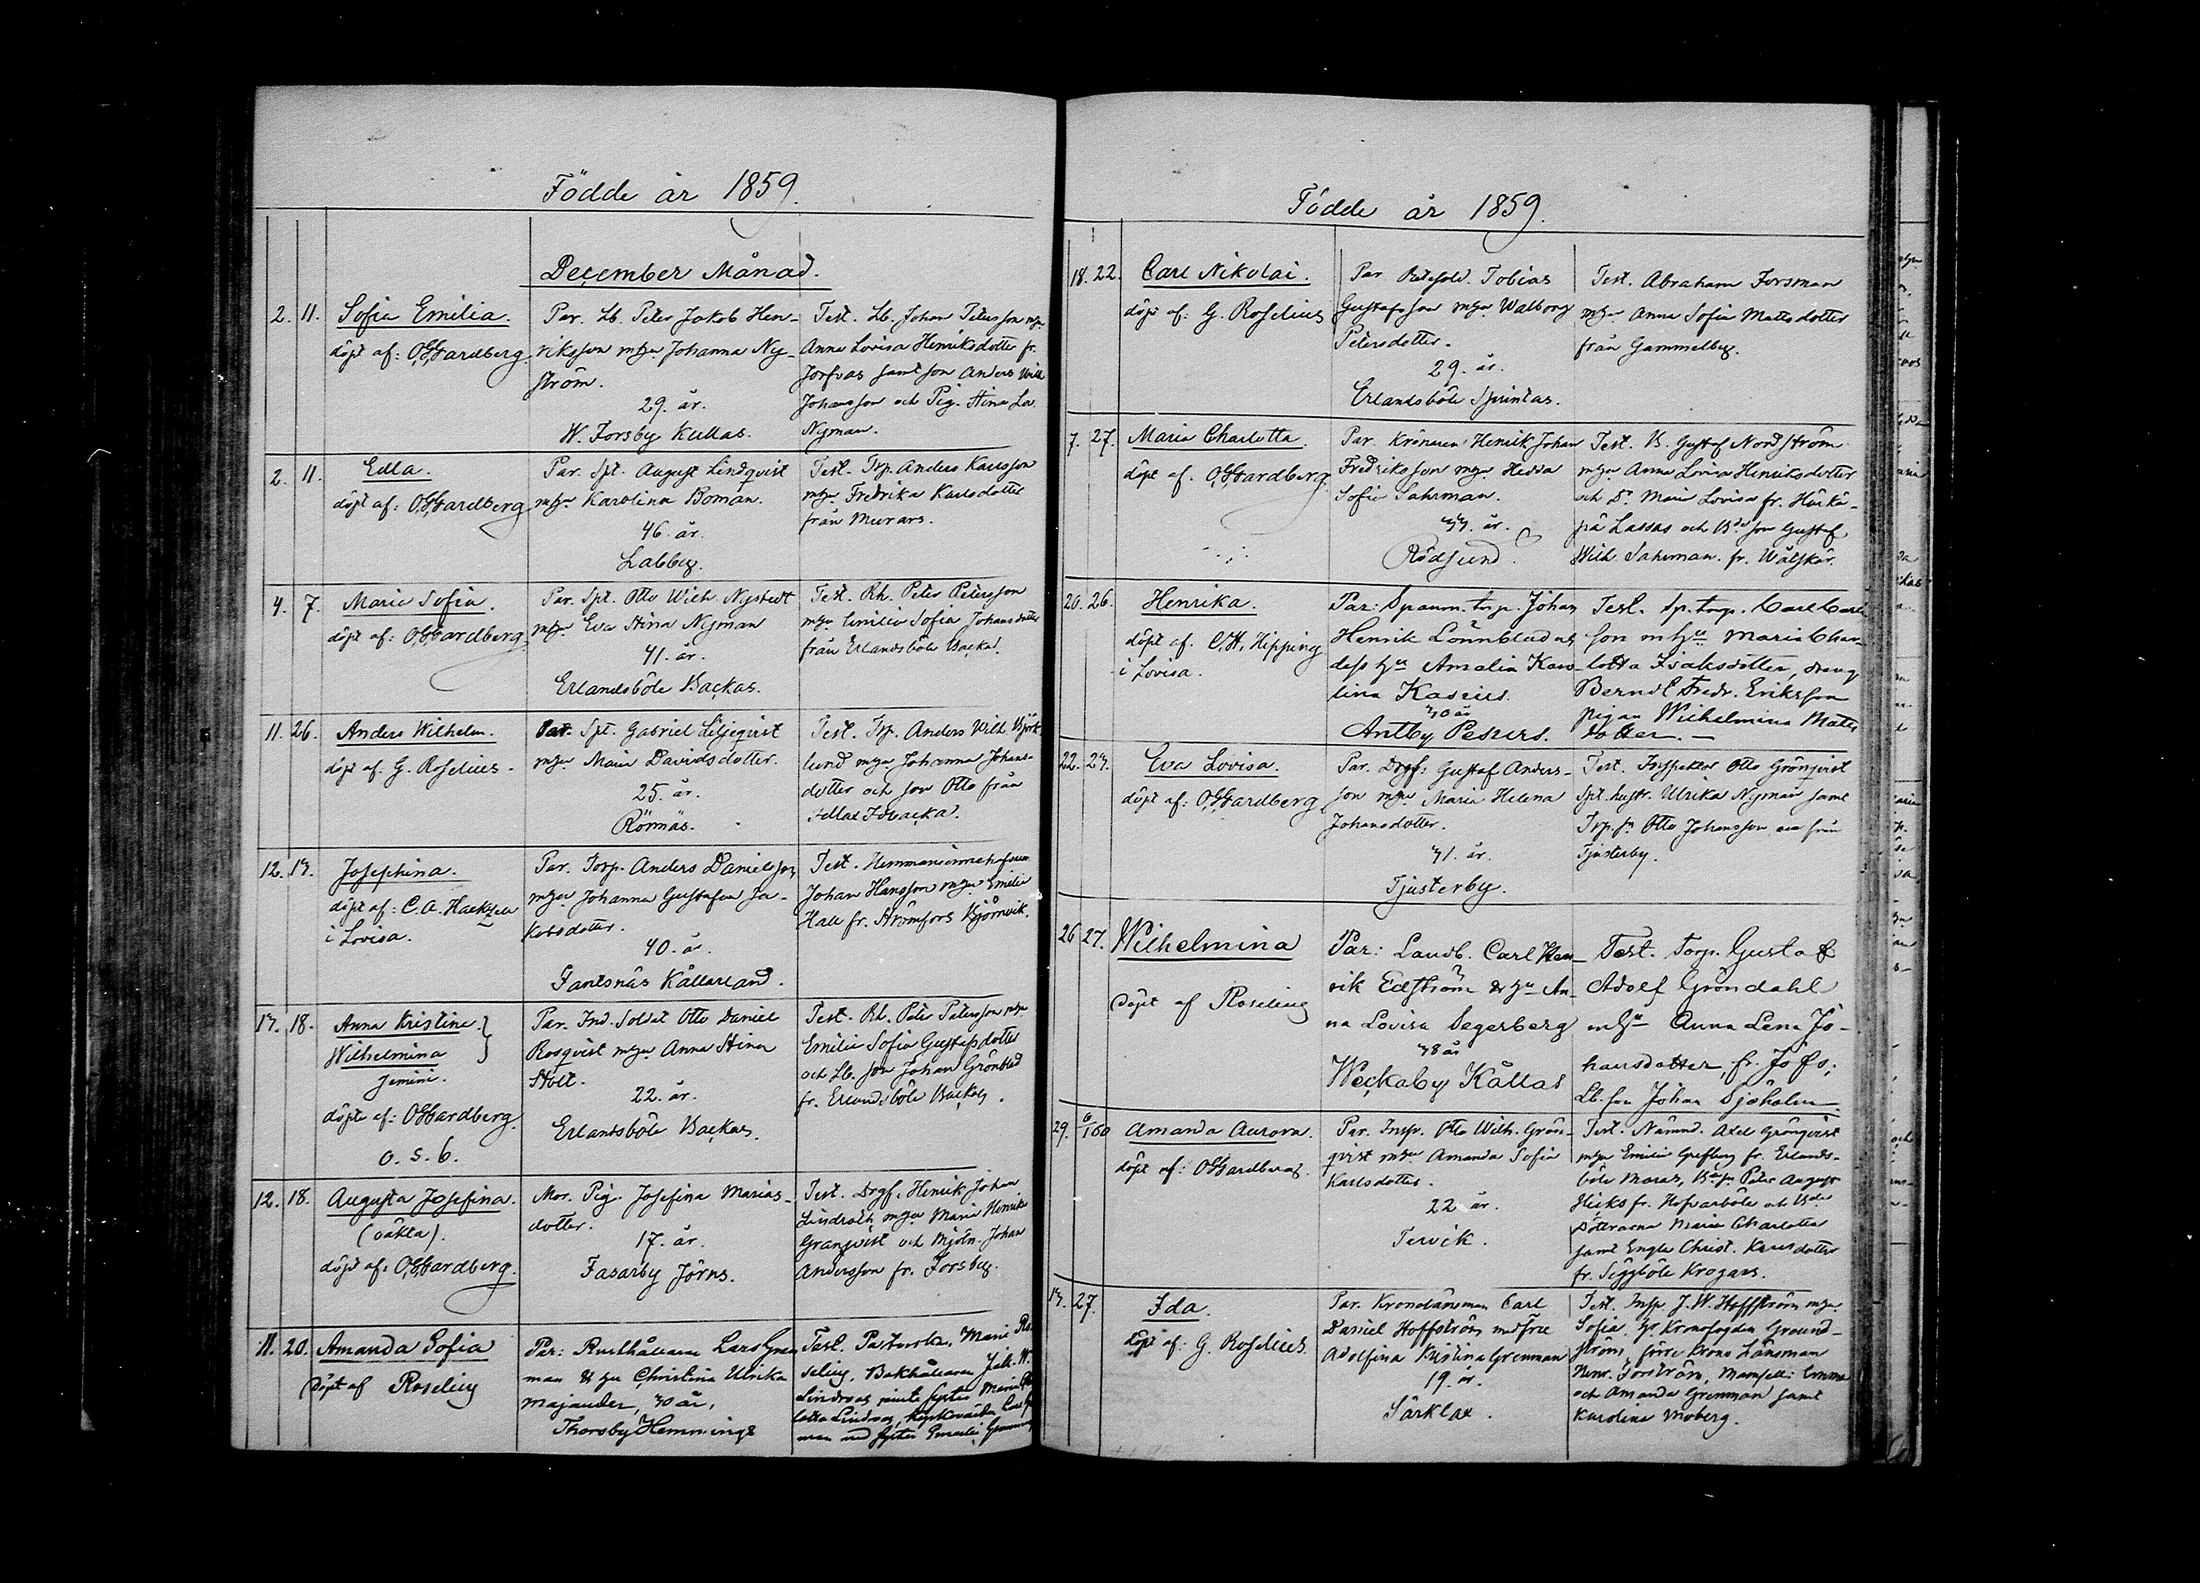 Födde år 1859.
December Månad.
2. 11. Sofia Emilia.
döpt af: O.G. Gardberg.
Par. Lb. Peter Jakob Hen-
riksson m h:u Johanna Ny-
ström.
29. år.
W. Forsby Kullas.
Test. Lb. Johan Petersson m h:u
Anna Lovisa Henriksdotter fr.
samt son Anders Wilh
Johansson och Pig. Stina Lov.
Nyman.
2. 11. Edla.
döpt af: O.G. Gardberg
Par. Spt. August Lindqvist
m h:u Karolina Boman.
46. år.
Labby.
Test. Trp. Anders Karlsson
m h:u Fredrika Karlsdotter
från Murars.
4. 7. Maria Sofia.
döpt af: O.G. Gardberg
Par. Spt. Otto Wilh. Nystedt
m h:u Eva Stina Nyman
41. år.
Erlandsböle Backas.
Test. Rh. Peter Petersson
m h:u Emilia Sofia Johansdotter
från Erlandsböle Backas.
11. 26. Anders Wilhelm.
döpt af. G. Roselius.
Par. Spt. Gabriel Liljeqvist
m h:u Maria Davidsdotter.
25. år.
Rörnäs.
Test. Trp. Anders Wilh. Björk-
lund m h:u Johanna Johans-
dotter och son Otto från
12. 17. Josephina.
döpt af: C. A. Hackzell
i Lovisa.
Par. Torp. Anders Danielsson
m h:u Johanna Gustafva Ja-
kobsdotter.
40. år
Fantsnäs Kållarland.
Test. Hemmansinnehafvaren
Johan Hansson m h:u Emilia
Hall fr. Strömfors Björnvik.
17. 18. Anna Kristina }
Wilhelmina
gemini.
döpte af: O.G. Gardberg.
o. s. b.
Par. Ind. Soldat Otto Daniel
Rosqvist m h:u Anna Stina
Stolt.
22. år.
Erlandsböle Backas.
Test. Rh. Peter Petersson m h:u
Emilia Sofia Gustafsdotter
och Lb. son Johan Grönblad
fr. Erlandsböle Backas.
12. 18. Augusta Josefina.
(oäkta).
döpt af: O.G. Gardberg.
Mor. Pig. Josefina Marias-
dotter.
17. år.
Fasarby Jörns.
Test. Drgf. Henrik Johan
Lindroth m h:u Maria Henrika
Granqvist och Mjöln. Johan
Andersson fr. Forsby.
11. 20. Amanda Sofia
Döpt af Roselius
Par: Rusthållaren Lars Gren
man & h:u Christina Ulrika
Majander, 30 år,
Thorsby Hemmings
Test. Pastorska, Maria Ro
selius, Bokhållaren Jak. W.
Lindroos
lotta Lindroos,
man med syster Emilia Grenman
Födde år 1859.
18. 22. Carl Nikolai.
döpt af: G. Roselius
Par Tobias
Gustafsson m h:u Walborg
Petersdotter.
29. år.
Erlandsböle Sprintas.
Test. Abraham Forsman
m h:u Anna Sofia Mattsdotter
från Gammelby.
7. 27. Maria Charlotta.
döpt af. O.G. Gardberg.
Par. Krönaren Henrik Johan
Fredriksson m h:u Hedda
Sofia Sahrman.
37. år.
Rödsund.
Test. B. Gustaf Nordström
m h:u Anna Lovisa Henriksdotter
och D:r Maria Lovisa fr. Härkä-
pä Lassas och B:de son Gustaf
Wilh. Sahrman. fr. Wåtskär.
20. 26. Henrika.
döpt af. C. H. Hipping
i Lovisa.
Par: Spanm. torp. Johan
Henrik Lönnblad och
dess h:u Amalia Karo-
lina Kasen.
30 år
Antby Pesurs.
Test. Sp. torp. Carl Carls
son m h:u Maria Char-
lotta Isaksdotter, dreng
Berndt Fredr. Eriksson
pigan Wilhelmina Matts
dotter.
22. 27. Eva Lovisa.
döpt af: O.G. Gardberg
Par. Drgf: Gustaf Anders-
son m h:u Maria Helena
Johansdotter.
31. år.
Tjusterby.
Test. Inspektor Otto Grönqvist
Spt. hustr. Ulrika Nyman samt
Trp. s:n Otto Johansson alla från
Tjusterby.
26 27. Wilhelmina
Döpt af Roselius
Par: Landb. Carl Hen-
rik Edström & h:u An-
na Lovisa Segerberg
38 år
Weckaby Kållas
Test. Torp. Gustaf
Adolf Gröndahl
m h:u Anna Lena Jo-
hansdotter, fr. Jo
Lb. son Johan Sjöholm
29. 6/1 60 Amanda Aurora.
döpt af: O.G. Gardberg.
Par. Insp. Otto Wilh. Grön-
qvist m h:u Amanda Sofia
Karlsdotter.
22 år.
Tervik.
Test. Nämnd. Axel Grönqvist
m h:u Emilia fr. Erlands-
böle Moras, Peter August
fr. Hofvarböle och B:des
Döttrarna Maria Charlotta
samt Engla Christ. Karlsdotter
fr. Siggböle Krogars.
17. 27. Ida.
döpt af: G. Roselius.
Par. Kronolänsman Carl
Daniel Hoffström med Fru
Adolfina Kristina Grenman
19. år.
Särklax.
Test. Insp. J. W. Hoffström m h:u
Sofia, Hr Kronofogden Grund-
ström, förre Krono Länsman
Henr. Forström, Mamsell: Emma
och Amanda Grenman samt
Karolina Moberg.